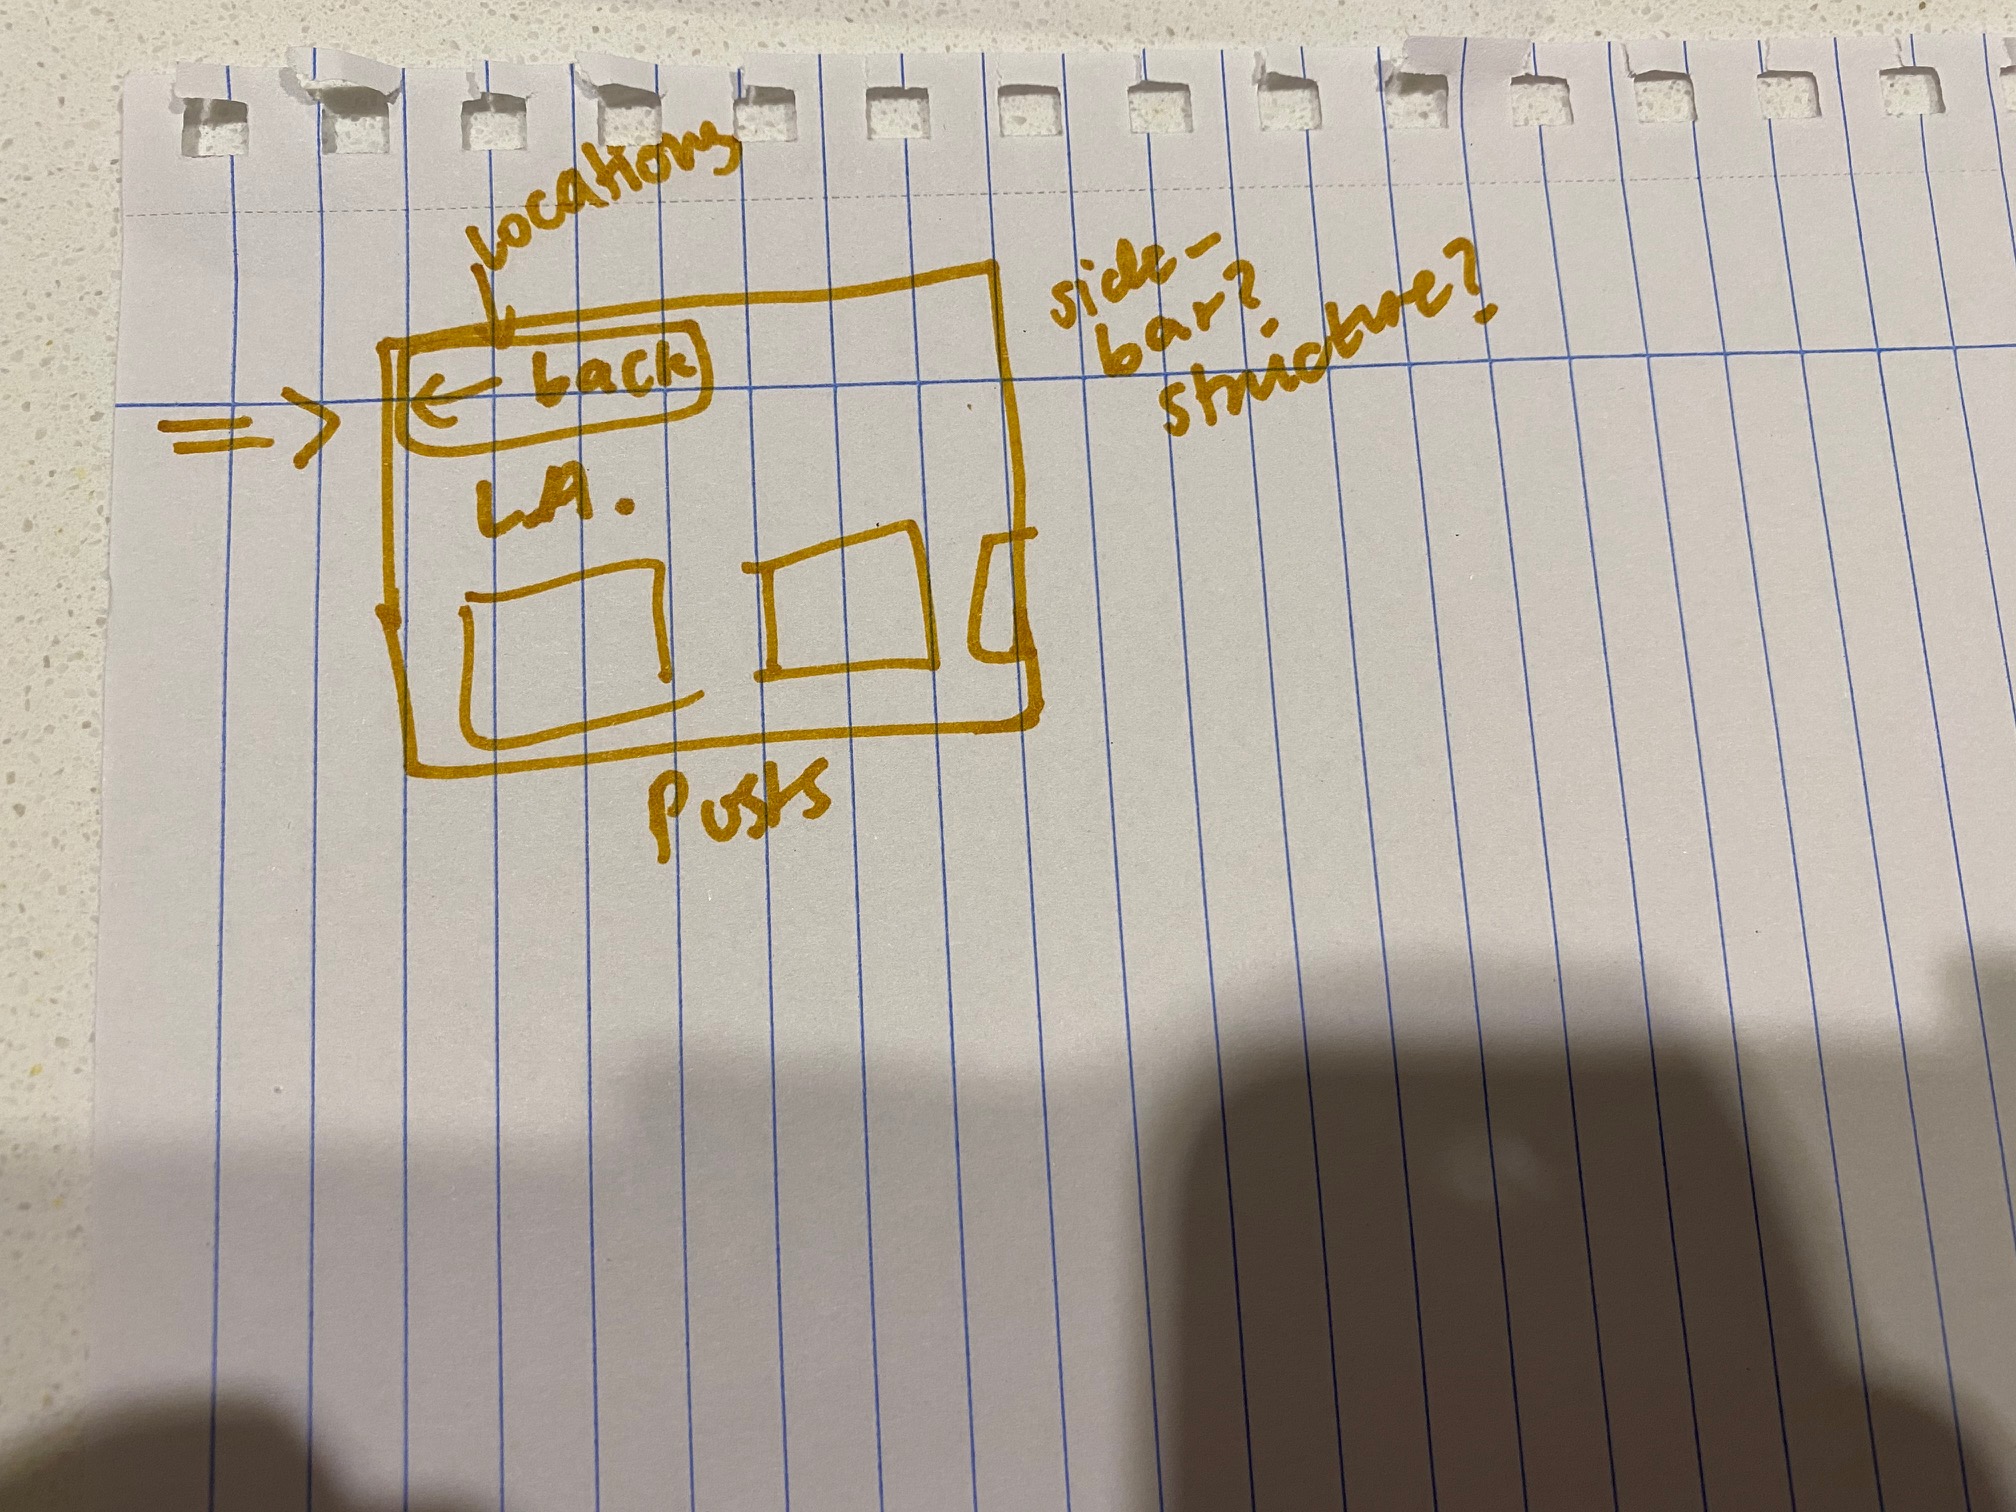 => 
locations
← back
LA.
posts
side-
bar?
structure?